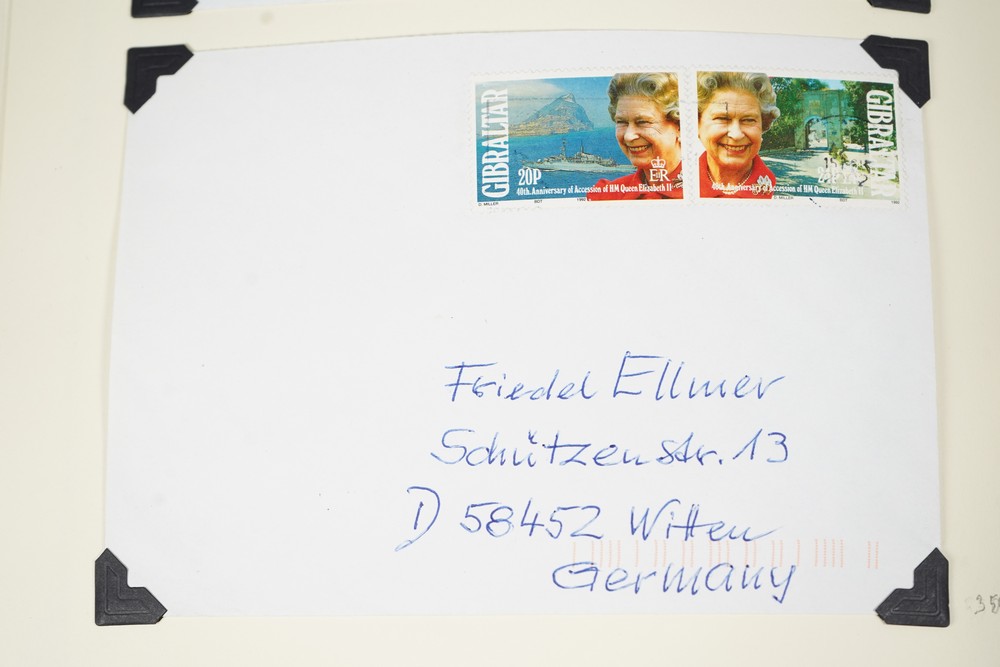 GIBRALTAR
20P
E II R
40th. Anniversary of Accession of HM Queen Elizabeth II
D. MILLER BDT 1992
GIBRALTAR
40th. Anniversary of Accession of HM Queen Elizabeth II
D. MILLER BDT 1992
Friedel Ellmer
Schützenstr. 13
D 58452 Witten
Germany